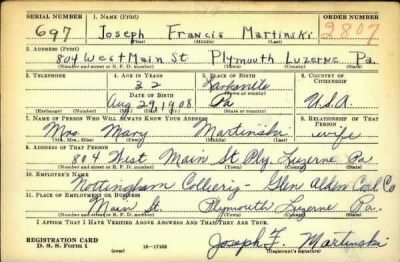 SERIAL NUMBER 1. NAME (Print) ORDER NUMBER
697 Joseph Francis Martinski 2807
(First) (Middle) (Last)
2. ADDRESS (Print)
804 West Main St Plymouth Luzerne Pa.
(Number and street or R. F. D. number) (Town) (County) (State)
3. TELEPHONE 4. AGE IN YEARS 5. PLACE OF BIRTH 6. COUNTRY OF CITIZENSHIP
32 Larksville
(Town or county)
DATE OF BIRTH
Aug 29, 1908 Pa U.S.A.
(Exchange) (Number) (Mo.) (Day) (Yr.) (State or country)
7. NAME OF PERSON WHO WILL ALWAYS KNOW YOUR ADDRESS 8. RELATIONSHIP OF THAT PERSON
Mrs. Mary Martinski wife
(Mr., Mrs., Miss) (First) (Middle) (Last)
9. ADDRESS OF THAT PERSON
804 West Main St Ply. Luzerne Pa
(Number and street or R. F. D. number) (Town) (County) (State)
10. EMPLOYER'S NAME
Nottingham Colliery - Glen Alden Coal Co
11. PLACE OF EMPLOYMENT OR BUSINESS
Main St. Plymouth Luzerne Pa.
(Number and street or R. F. D. number) (Town) (County) (State)
I AFFIRM THAT I HAVE VERIFIED ABOVE ANSWERS AND THAT THEY ARE TRUE.
REGISTRATION CARD
D. S. S. Form 1 (over) 16-17105 Joseph F. Martinski
(Registrant's signature)